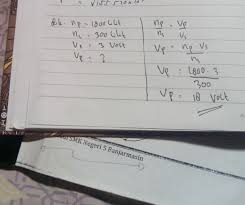 Dik. np = 1800 lilit
ns = 300 lilit
Vs = 3 Volt
Vp = ?
np = Vp
ns Vs
Vp = np Vs
ns
Vp = 1800 . 3
300
Vp = 18 Volt
SMK Negeri 5 Banjarmasin